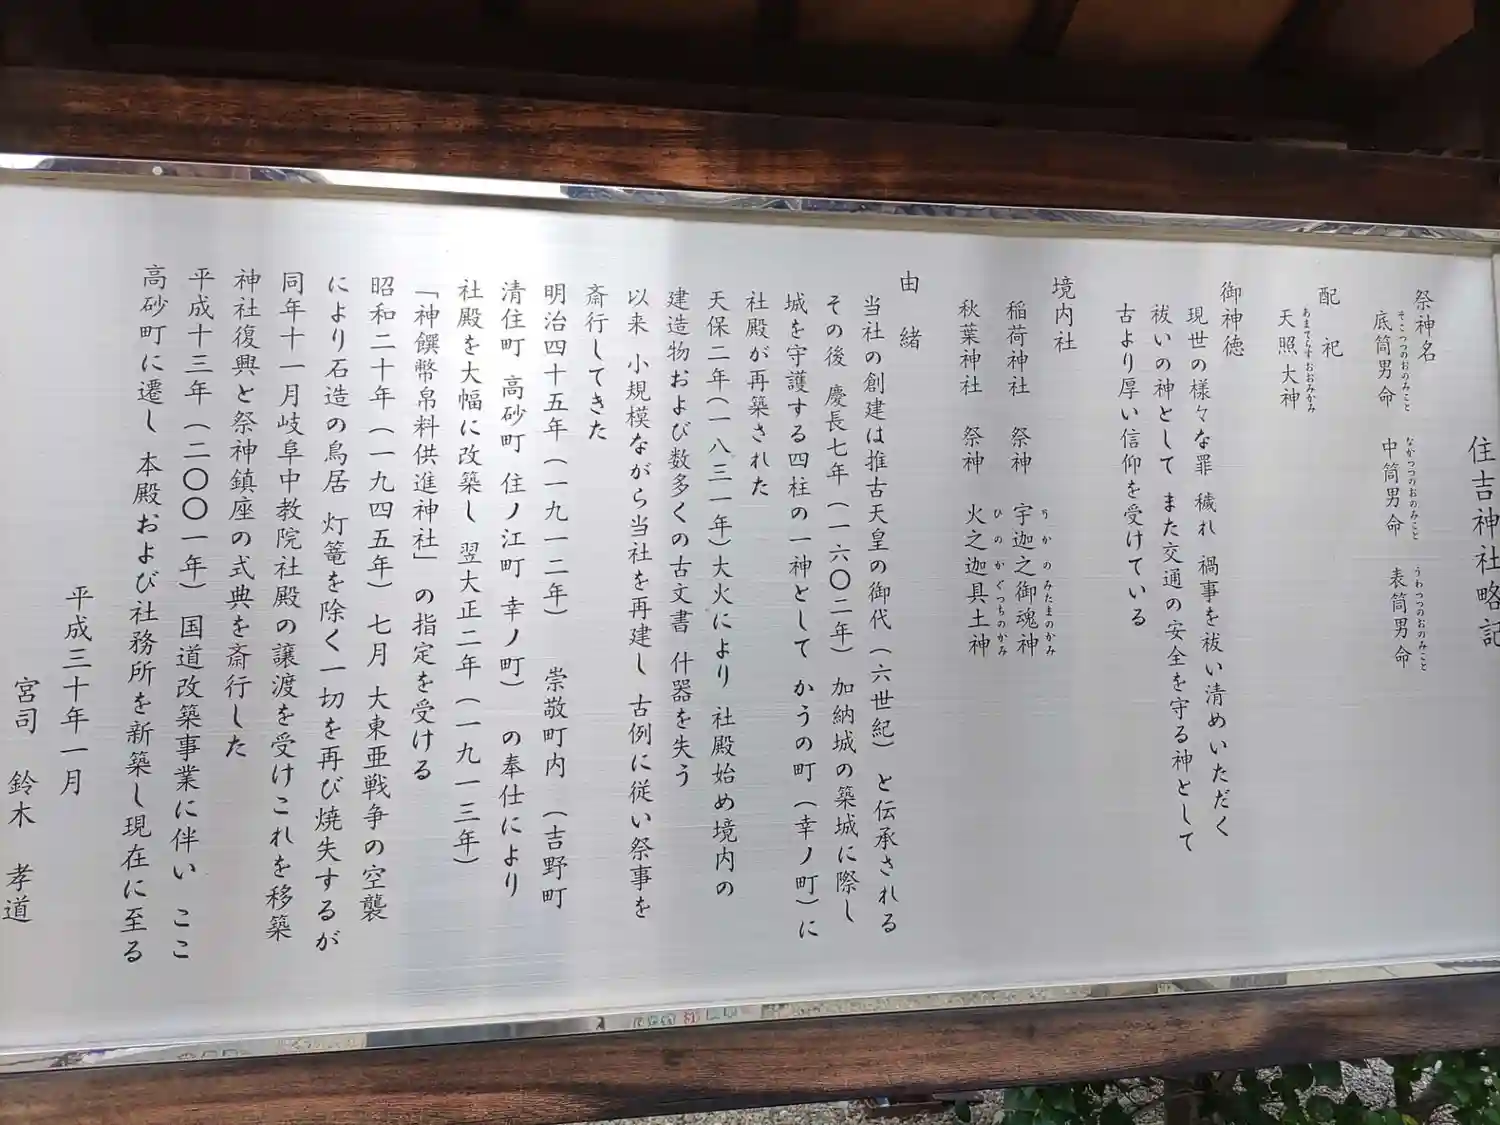 住吉神社略記
祭神名
底筒男命 中筒男命 表筒男命
そこつつのおのみこと なかつつのおのみこと うわつつのおのみこと
配祀
天照大神
あまてらすおおみかみ
御神徳
現世の様々な罪 穢れ 禍事を祓い清めいただく
祓いの神として また交通の安全を守る神として
古より厚い信仰を受けている
境内社
稲荷神社 祭神 宇迦之御魂神
うかのみたまのかみ
秋葉神社 祭神 火之迦具土神
ひのかぐつちのかみ
由緒
当社の創建は推古天皇の御代(六世紀)と伝承される
その後 慶長七年(一六〇二年) 加納城の築城に際し
城を守護する四柱の一神として かうの町(幸ノ町)に
社殿が再築された
天保二年(一八三一年)大火により 社殿始め境内の
建造物および数多くの古文書 什器を失う
以来 小規模ながら当社を再建し 古例に従い祭事を
斎行してきた
明治四十五年(一九一二年) 崇敬町内(吉野町
清住町 高砂町 住ノ江町 幸ノ町)の奉仕により
社殿を大幅に改築し 翌大正二年(一九一三年)
「神饌幣帛料供進神社」の指定を受ける
昭和二十年(一九四五年)七月 大東亜戦争の空襲
により石造の鳥居 灯篭を除く一切を再び焼失するが
同年十一月岐阜中教院社殿の譲渡を受けこれを移築
神社復興と祭神鎮座の式典を斎行した
平成十三年(二〇〇一年) 国道改築事業に伴い ここ
高砂町に遷し 本殿および社務所を新築し現在に至る
平成三十年一月
宮司 鈴木 孝道